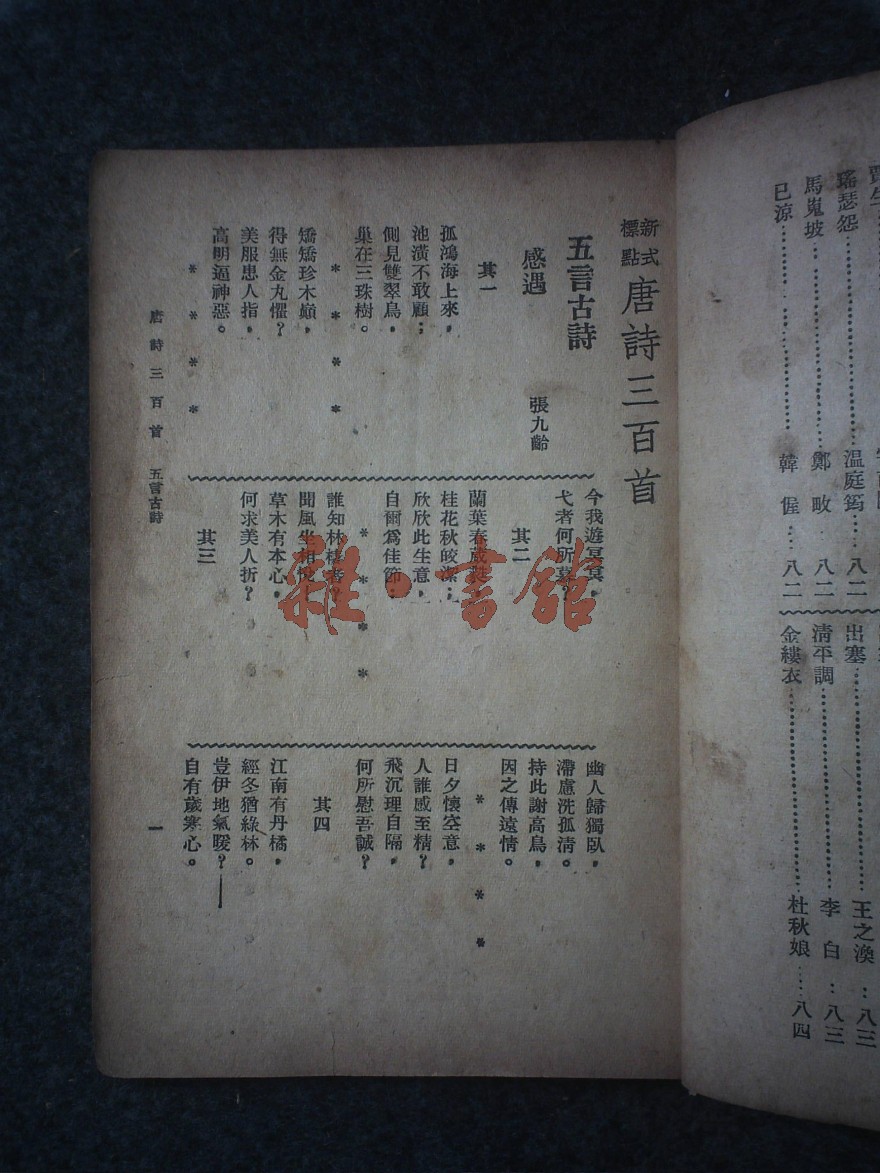 瑤瑟怨……温庭筠…八二
馬嵬坡……鄭畋.八二
已涼……韓偓…八二
出塞……王之渙：八三
清平調……李白：八三
金縷衣……杜秋娘…八四
新式標點 唐詩三百首
五言古詩
感遇 張九齡
其一
孤鴻海上來，
池潢不敢顧；
側見雙翠鳥，
巢在三珠樹。
* * * *
矯矯珍木巔，
得無金丸懼？
美服患人指，
高明逼神惡。
* * * *
今我遊冥冥，
弋者何所慕？
其二
蘭葉春葳蕤
桂花秋皎潔；
欣欣此生意，
自爾爲佳節；
* * * *
誰知林棲者？
聞風坐相悅
草木有本心，
何求美人折？
其三
幽人歸獨臥，
滯慮洗孤清。
持此謝高鳥，
因之傳遠情。
* * * *
日夕懷空意，
人誰感至精？
飛沉理自隔，
何所慰吾誠？
其四
江南有丹橘，
經冬猶綠林。
豈伊地氣暖？——
自有歲寒心。
唐詩三百首 五言古詩 一
雜·書館